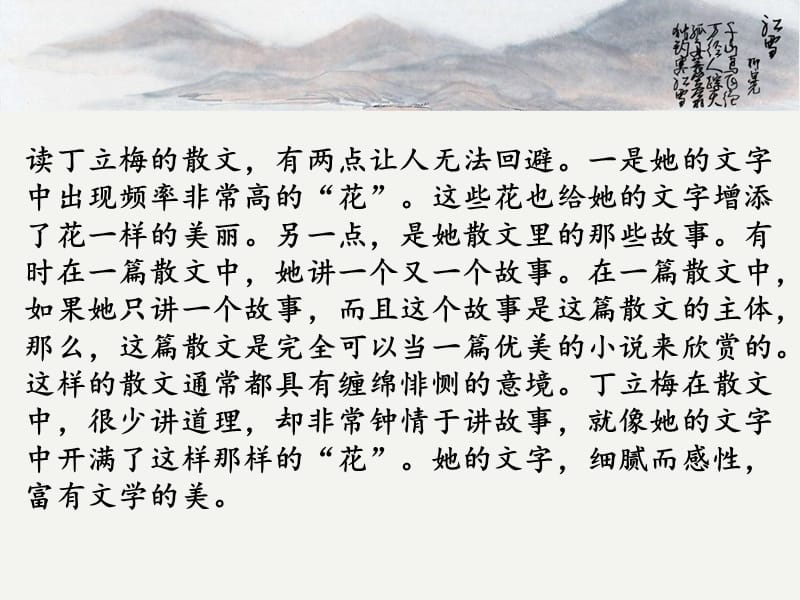 江雪
柳宗元
千山鸟飞绝
万径人踪灭
孤舟蓑笠翁
独钓寒江雪
读丁立梅的散文，有两点让人无法回避。一是她的文字
中出现频率非常高的“花”。这些花也给她的文字增添
了花一样的美丽。另一点，是她散文里的那些故事。有
时在一篇散文中，她讲一个又一个故事。在一篇散文中，
如果她只讲一个故事，而且这个故事是这篇散文的主体，
那么，这篇散文是完全可以当一篇优美的小说来欣赏的。
这样的散文通常都具有缠绵悱恻的意境。丁立梅在散文
中，很少讲道理，却非常钟情于讲故事，就像她的文字
中开满了这样那样的“花”。她的文字，细腻而感性，
富有文学的美。